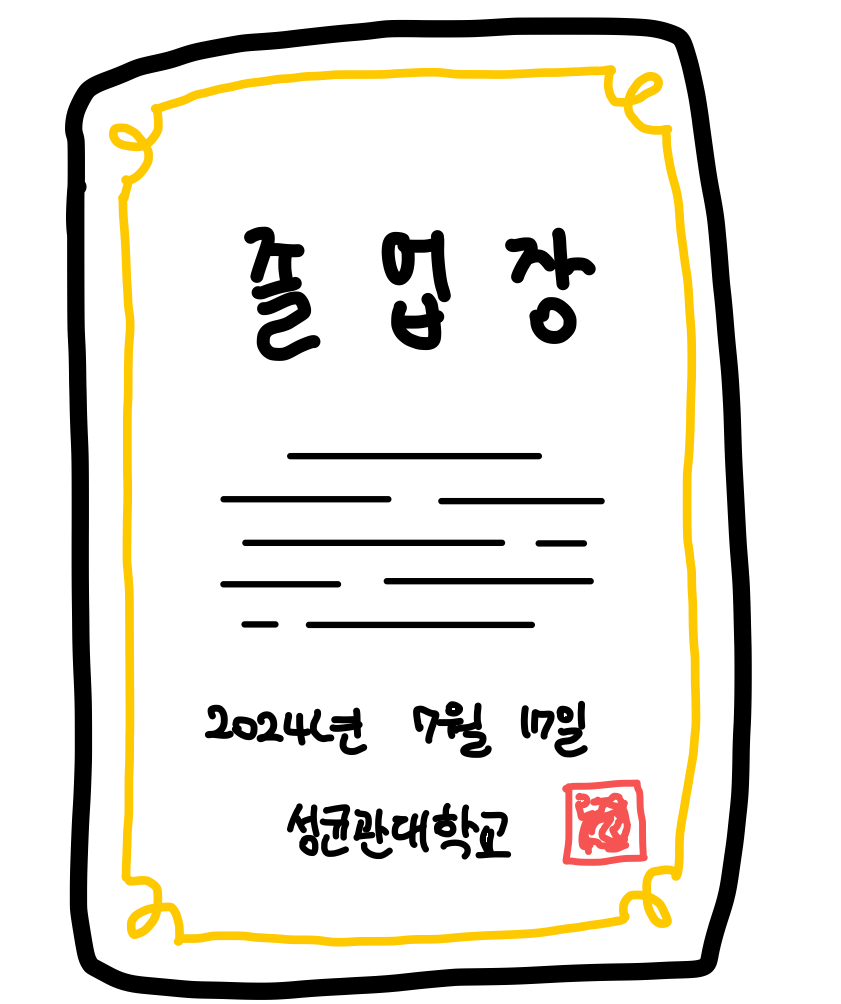 졸 업 장
2024년 7월 17일
성균관대학교